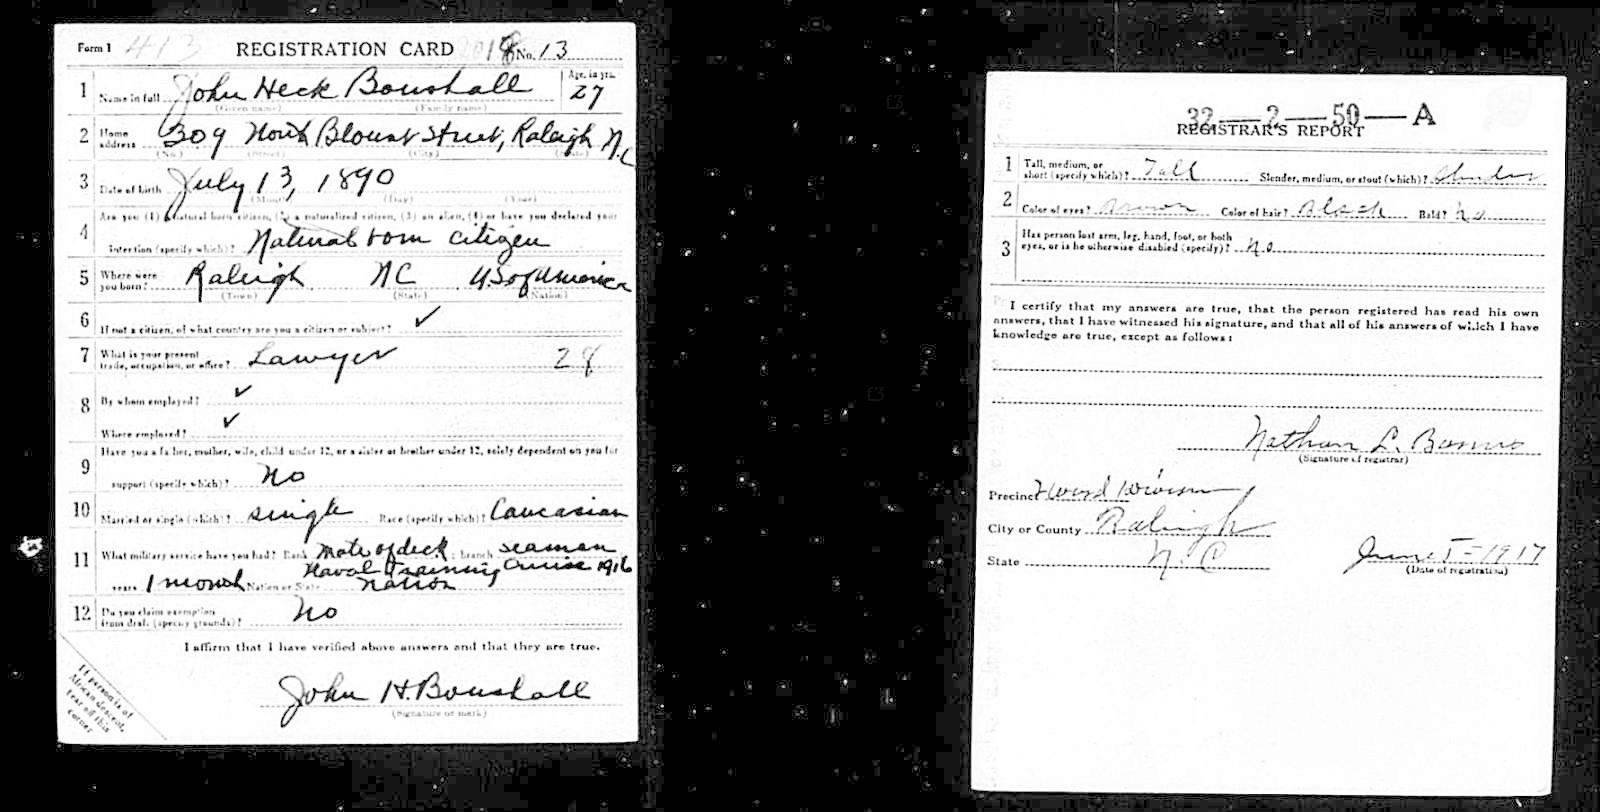 Form 1 413 REGISTRATION CARD No. 13
1 Name in full John Heck Boushall Age, in yrs. 27
(Given name) (Family name)
2 Home address 309 North Blount Street, Raleigh N.C
(No.) (Street) (City) (State)
3 Date of birth July 13, 1890
(Month) (Day) (Year)
4 Are you (1) a natural born citizen, (2) a naturalized citizen, (3) an alien, (4) or have you declared your
intention (specify which)? Natural born citizen
5 Where were you born? Raleigh NC US of America
(Town) (State) (Nation)
6 If not a citizen, of what country are you a citizen or subject? ✓
7 What is your present trade, occupation, or office? Lawyer 28
8 By whom employed? ✓
Where employed? ✓
9 Have you a father, mother, wife, child under 12, or a sister or brother under 12, solely dependent on you for
support (specify which)? No
10 Married or single (which)? single Race (specify which)? Caucasian
11 What military service have you had? Rank mate of deck; branch seaman
Naval Training Cruise 1916
years 1 month Nation or State Nation
12 Do you claim exemption from draft (specify grounds)? No
I affirm that I have verified above answers and that they are true.
John H. Boushall
(Signature or mark)
If person is of
African descent,
tear off this
corner
32—2—50—A
REGISTRAR'S REPORT
1 Tall, medium, or short (specify which)? Tall Slender, medium, or stout (which)? Slender
2 Color of eyes? Brown Color of hair? Black Bald? No
3 Has person lost arm, leg, hand, foot, or both
eyes, or is he otherwise disabled (specify)? No
I certify that my answers are true, that the person registered has read his own
answers, that I have witnessed his signature, and that all of his answers of which I have
knowledge are true, except as follows:
Nathan L.
(Signature of registrar)
Precinct
City or County Raleigh
State N.C June 5-1917
(Date of registration)